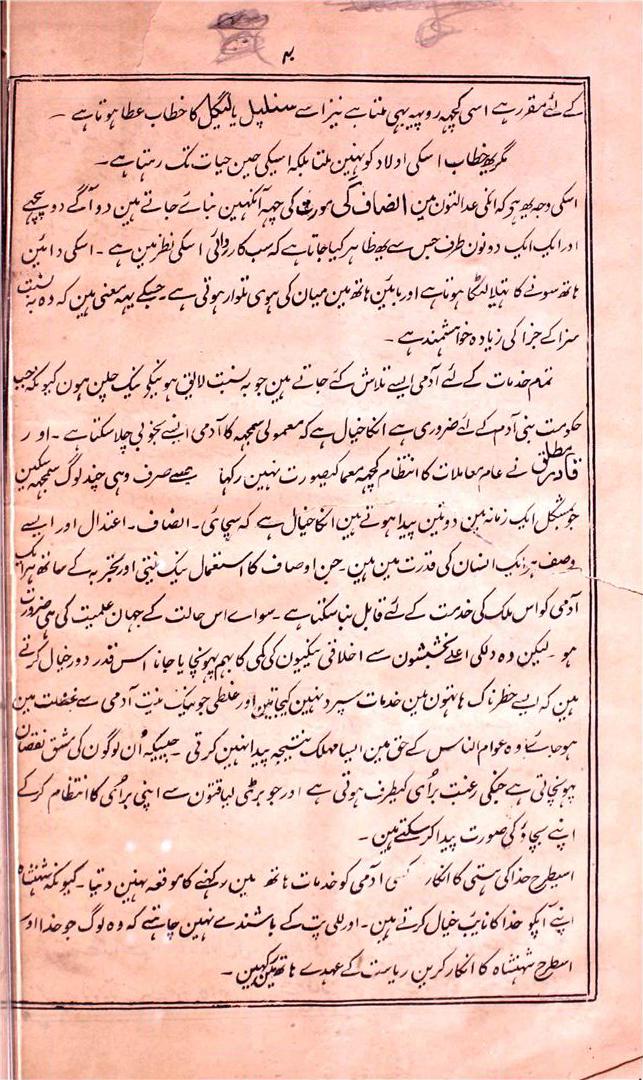 کے لئے مقرر ہے اسی کچھہ روپیہ بہی ملتا ہے نیز اسے سنلپل یا لیگل کا خطاب عطا ہوتا ہے ۔
مگر یہ خطاب اسکی اولاد کو نہین ملتا بلکہ اسیکی حین حیات تک رہتا ہے ۔
اسکی وجہ یہ ہی کہ انکی عدالتون مین انصاف کی مورت کی چہہ آنکہین بنائے جاتے ہین دو آگے دو پیچہے
اور ایک ایک دونون طرف جس سے یہ ظاہر کیا جاتا ہے کہ سب کاروائی اسکی نظر مین ہے ۔ اسکی دائین
ہاتھ سونے کا تہیلا لٹکا ہوتا ہے اور بائین ہاتھ مین میان کی ہوی تلوار ہوتی ہے ۔ جسکے یہہ معنی ہین کہ وہ بہ نسبت
سزا کے جزا کی زیادہ خواہشمند ہے ۔
تمام خدمات کے لئے آدمی ایسے تلاش کئے جاتے ہین جو بہ نسبت لایق ہونیکے نیک چلن ہون کیونکہ جب
حکومت بنی آدم کے لئے ضروری ہے انکا خیال ہے کہ معمولی سمجہہ کا آدمی اسے بخوبی چلا سکتا ہے ۔ اور
قادر مطلق نے عام معاملات کا انتظام کچہہ معما کیصورت نہین رکہا جسے صرف وہی چند لوگ سمجہہ سکین
جو مشکل ایک زمانہ مین دو تین پیدا ہوتے ہین انکا خیال ہے کہ سچائی ۔ انصاف ۔ اعتدال اور ایسے
وصف ہر ایک انسان کی قدرت مین ہین ۔ جن اوصاف کا استعمال نیک نیتی اور تجربہ کے ساتھ ہر ایک
آدمی کو اس ملک کی خدمت کے لئے قابل بنا سکتا ہے ۔ سوائے اس حالت کے جہان علمیت کی ہی ضرورت
ہو ۔ لیکن وہ دلکی اعلے بخششون سے اخلاقی نیکیون کی کمی کا بہم پہونچایا جانا اس قدر دور خیال کرتے
ہین کہ ایسے خطرناک ہاتہون مین خدمات سپرد نہین کیجاتین اور غلطی جو نیک نیت آدمی سے غفلت مین
ہو جائے وہ عوام الناس کے حق مین ایسا مہلک نتیجہ پیدا نہین کرتی ۔ جیسیکہ اُن لوگون کی مشق نقصان
پہونچاتی ہے جنکی رغبت برائی کیطرف ہوتی ہے اور جو بڑی لیاقتون سے اپنی برائی کا انتظام کر کے
اپنے بچاؤ کی صورت پیدا کر سکتے ہین ۔
اسیطرح خدا کی ہستی کا انکار کسی آدمی کو خدمات ہاتھ مین رکہنے کا موقعہ نہین دیتا ۔ کیونکہ شہنشاہ
اپنے آپکو خدا کا نایب خیال کرتے ہین ۔ اور للی پٹ کے باشندے نہین چاہتے کہ وہ لوگ جو خدا اور
اسطرح شہنشاہ کا انکار کرین ریاست کے عہدے ہاتھ مین رکہین ۔